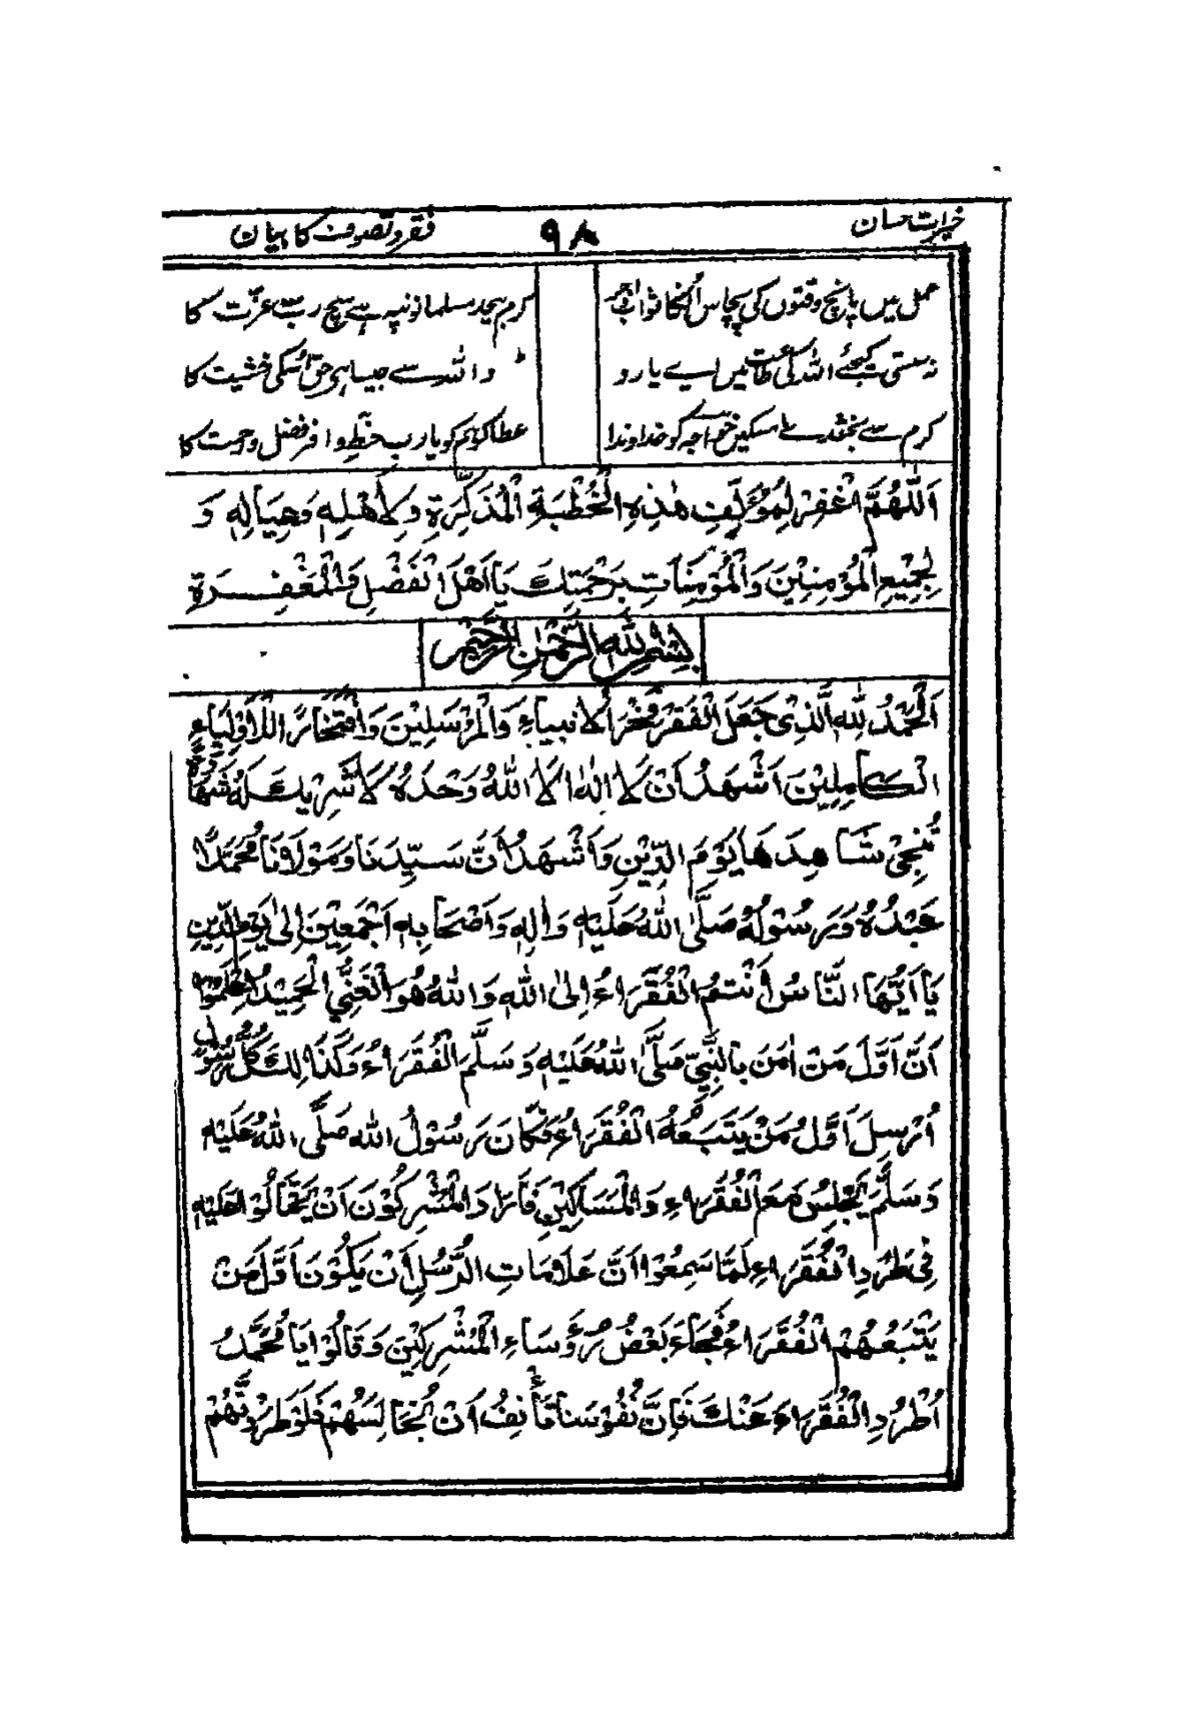 خیرات حسان ۹۸ فقر و تصوف کا بیان
عمل میں پانچ وقتوں کی پچاس انکا ثواب اجر کرم بیحد مسلمانونپہ ہے سچ رب عزت کا
نہ سستی کیجئے اللہ کی طاعت میں اے یارو و اللہ سے جیسا ہی حق اُسکی خشیت کا
کرم سے بخشدے مسکین خواجہ کو خداوندا عطا کر ہم کو یا رب حظِّ وافر فضل و رحمت کا
اَللّٰهُمَّ اغْفِرْ لِمُؤَلِّفِ هٰذِهِ الْخُطْبَةِ الْمُذَكِّرَةِ وَلِاَهْلِهٖ وَعِيَالِهٖ وَ
لِجَمِيْعِ الْمُؤْمِنِيْنَ وَالْمُؤْمِنَاتِ بِرَحْمَتِكَ يَا اَهْلَ الْفَضْلِ وَالْمَغْفِرَةِ
بِسْمِ اللهِ الرَّحْمٰنِ الرَّحِيْمِ
اَلْحَمْدُ لِلّٰهِ الَّذِىْ جَعَلَ الْفَقْرَ فَخْرَ الْاَنْبِيَاءِ وَالْمُرْسَلِيْنَ وَافْتِخَارًا لِّلْاَوْلِيَاءِ
الْكَامِلِيْنَ اَشْهَدُ اَنْ لَّا اِلٰهَ اِلَّا اللهُ وَحْدَهٗ لَا شَرِيْكَ لَهٗ شَهَادَةً
تُنْجِىْ شَاهِدَهَا يَوْمَ الدِّيْنِ وَاَشْهَدُ اَنَّ سَيِّدَنَا وَمَوْلَانَا مُحَمَّدًا
عَبْدُهٗ وَرَسُوْلُهٗ صَلَّى اللهُ عَلَيْهِ وَاٰلِهٖ وَاَصْحَابِهٖ اَجْمَعِيْنَ اِلٰى يَوْمِ الدِّيْنِ
يَا اَيُّهَا النَّاسُ اَنْتُمُ الْفُقَرَاءُ اِلَى اللهِ وَاللهُ هُوَ الْغَنِىُّ الْحَمِيْدُ اِعْلَمُوْا
اَنَّ اَوَّلَ مَنْ اٰمَنَ بِالنَّبِىِّ صَلَّى اللهُ عَلَيْهِ وَسَلَّمَ الْفُقَرَاءُ وَكَذَالِكَ كُلُّ رَسُوْلٍ
اُرْسِلَ اَوَّلُ مَنْ يَتَّبِعُهُ الْفُقَرَاءُ فَكَانَ رَسُوْلُ اللهِ صَلَّى اللهُ عَلَيْهِ
وَسَلَّمَ يَجْلِسُ مَعَ الْفُقَرَاءِ وَالْمَسَاكِيْنِ فَاَرَادَ الْمُشْرِكُوْنَ اَنْ يَّحْتَالُوْا عَلَيْهِ
فِىْ طَرْدِ الْفُقَرَاءِ لَمَّا سَمِعُوْا اَنَّ عَلَامَاتِ الرُّسُلِ اَنْ يَكُوْنَ اَوَّلَ مَنْ
يَتَّبِعُهُمُ الْفُقَرَاءُ فَجَاءَ بَعْضُ رُؤَسَاءِ الْمُشْرِكِيْنَ وَقَالُوْا يَا مُحَمَّدُ
اُطْرُدِ الْفُقَرَاءَ عَنْكَ فَاِنَّ نُفُوْسَنَا تَأْنَفُ اَنْ تُجَالِسَهُمْ فَلَوْ طَرَدْتَّهُمْ